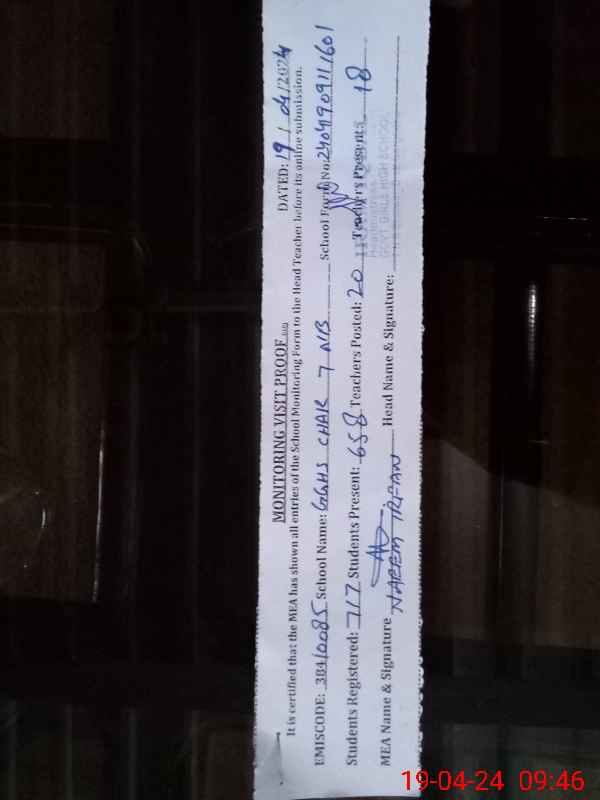 MONITORING VISIT PROOF
DATED: 19/04/2024
It is certified that the MEA has shown all entries of the School Monitoring Form to the Head Teacher before its online submission.
EMISCODE: 38410085 School Name: GGHS CHAK 7 NB School Form No: 2404190911601
Students Registered: 717 Students Present: 658 Teachers Posted: 20 Teachers Present: 18
MEA Name & Signature NAEEM IRFAN Head Name & Signature:
Headmistress
GOVT GIRLS HIGH SCHOOL
19-04-24 09:46